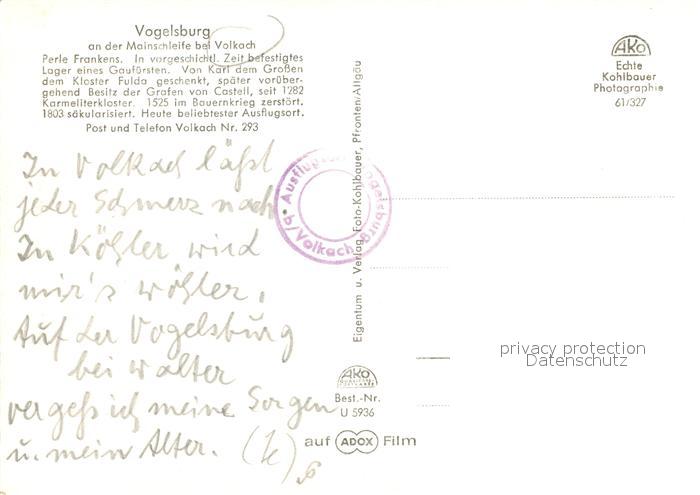 Vogelsburg
an der Mainschleife bei Volkach
Perle Frankens. In vorgeschichtl. Zeit befestigtes
Lager eines Gaufürsten. Von Karl dem Großen
dem Kloster Fulda geschenkt, später vorüber-
gehend Besitz der Grafen von Castell, seit 1282
Karmeliterkloster. 1525 im Bauernkrieg zerstört.
1803 säkularisiert. Heute beliebtester Ausflugsort.
Post und Telefon Volkach Nr. 293
In Volkach läßt
jeder Schmerz nach
In Köhler wird
mir's wöhler.
Auf der Vogelsburg
bei Walter
vergeß ich meine Sorgen
u. mein Alter.
Ausflugsort Vogelsburg
b/Volkach
Eigentum u. Verlag Foto-Kohlbauer, Pfronten/Allgäu
AKO
Echte
Kohlbauer
Photographie
61/327
privacy protection
Datenschutz
AKO
Best.-Nr.
U 5936
auf ADOX Film